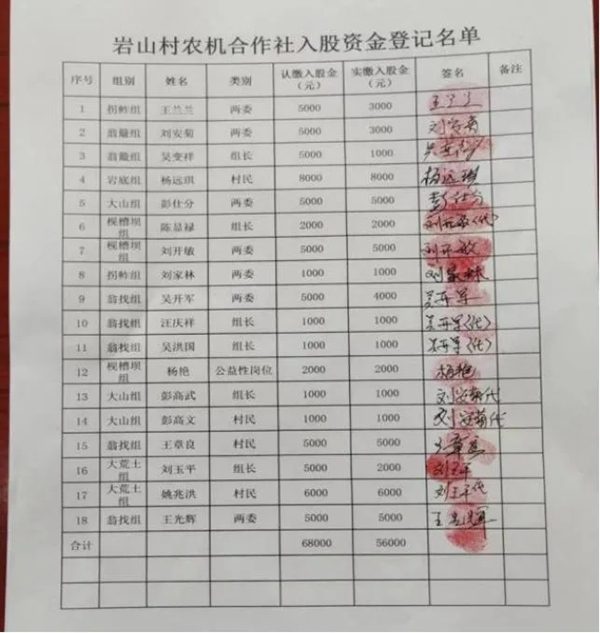 岩山村农机合作社入股资金登记名单
序号 组别 姓名 类别 认缴入股金（元） 实缴入股金（元） 签名 备注
1 拐蚱组 王兰兰 两委 5000 3000
2 翁戢组 刘安菊 两委 5000 3000 刘安菊
3 翁戢组 吴变祥 组长 5000 1000
4 岩底组 杨远琪 村民 8000 8000 杨远琪
5 大山组 彭仕分 两委 5000 5000 彭仕分
6 枧槽坝组 陈显禄 组长 2000 2000 刘开敏(代)
7 枧槽坝组 刘开敏 两委 5000 5000 刘开敏
8 拐蚱组 刘家林 两委 1000 1000 刘家林
9 翁找组 吴开军 两委 5000 4000 吴开军
10 翁找组 汪庆祥 组长 1000 1000 吴开军(代)
11 翁找组 吴洪国 组长 1000 1000 吴开军(代)
12 枧槽坝组 杨艳 公益性岗位 2000 2000 杨艳
13 大山组 彭高武 组长 1000 1000 刘安菊代
14 大山组 彭高文 村民 1000 1000 刘安菊代
15 翁找组 王章良 村民 5000 5000 王章良
16 大荒土组 刘玉平 组长 5000 2000 刘玉平
17 大荒土组 姚兆洪 村民 6000 6000 刘玉平代
18 翁找组 王光辉 两委 5000 5000 王光辉
合计 68000 56000